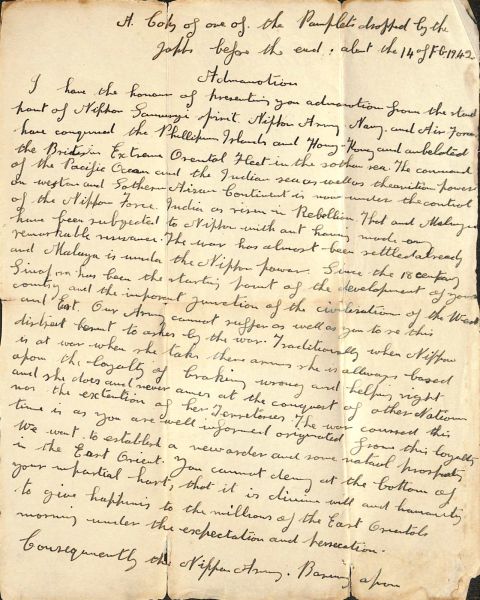 A. Copy of one of the Pamplets dropped by the
Japs before the end, about the 14 of Feb 1942
Admanotion
I have the honour of presenting you admonition from the stand
point of Nippon Samuryi spirit. Nippon Army, Navy, and Air Force
have conquered the Phillipine Islands and Hong-Kong and anhelated
the British Extreme Oriental Fleet in the sothan sea. The command
of the Pacific Ocean and the Indian sea as well as the aviation power
on westan and Sothern Aisan Continent is now under the control
of the Nippon Force. India as risen in Rebellion. Thai and Malaya
have been subjected to Nippon with out having made any
remarkable resistance. The war has almost been settled already
and Malaya is under the Nippon power. Since the 18 century
Singapore has been the starting point of the development of your
country and the imporant junction of the civilisation of the West
and East. Our Army cannot suffer as well as you to see this
district burnt to ashes by the war. Traditionally when Nippon
is at war when she takes there arms she is allways based
apon the loyalty of braking wrong and helping right
and she does and never aimes at the conquest of other Nations
nor the extention of her Terretories. The war coursed this
time is as you are well informed originated from this loyalty
We want to establish a new order and some natual prosperity
in the East Orient. You cannot deny at the bottom of
your inpartial hart, that it is divine will and humanity
to give happinis to the millions of the East Orientals
morning under the expectation and persecution.
Consequently the Nippon Army. Basing apon